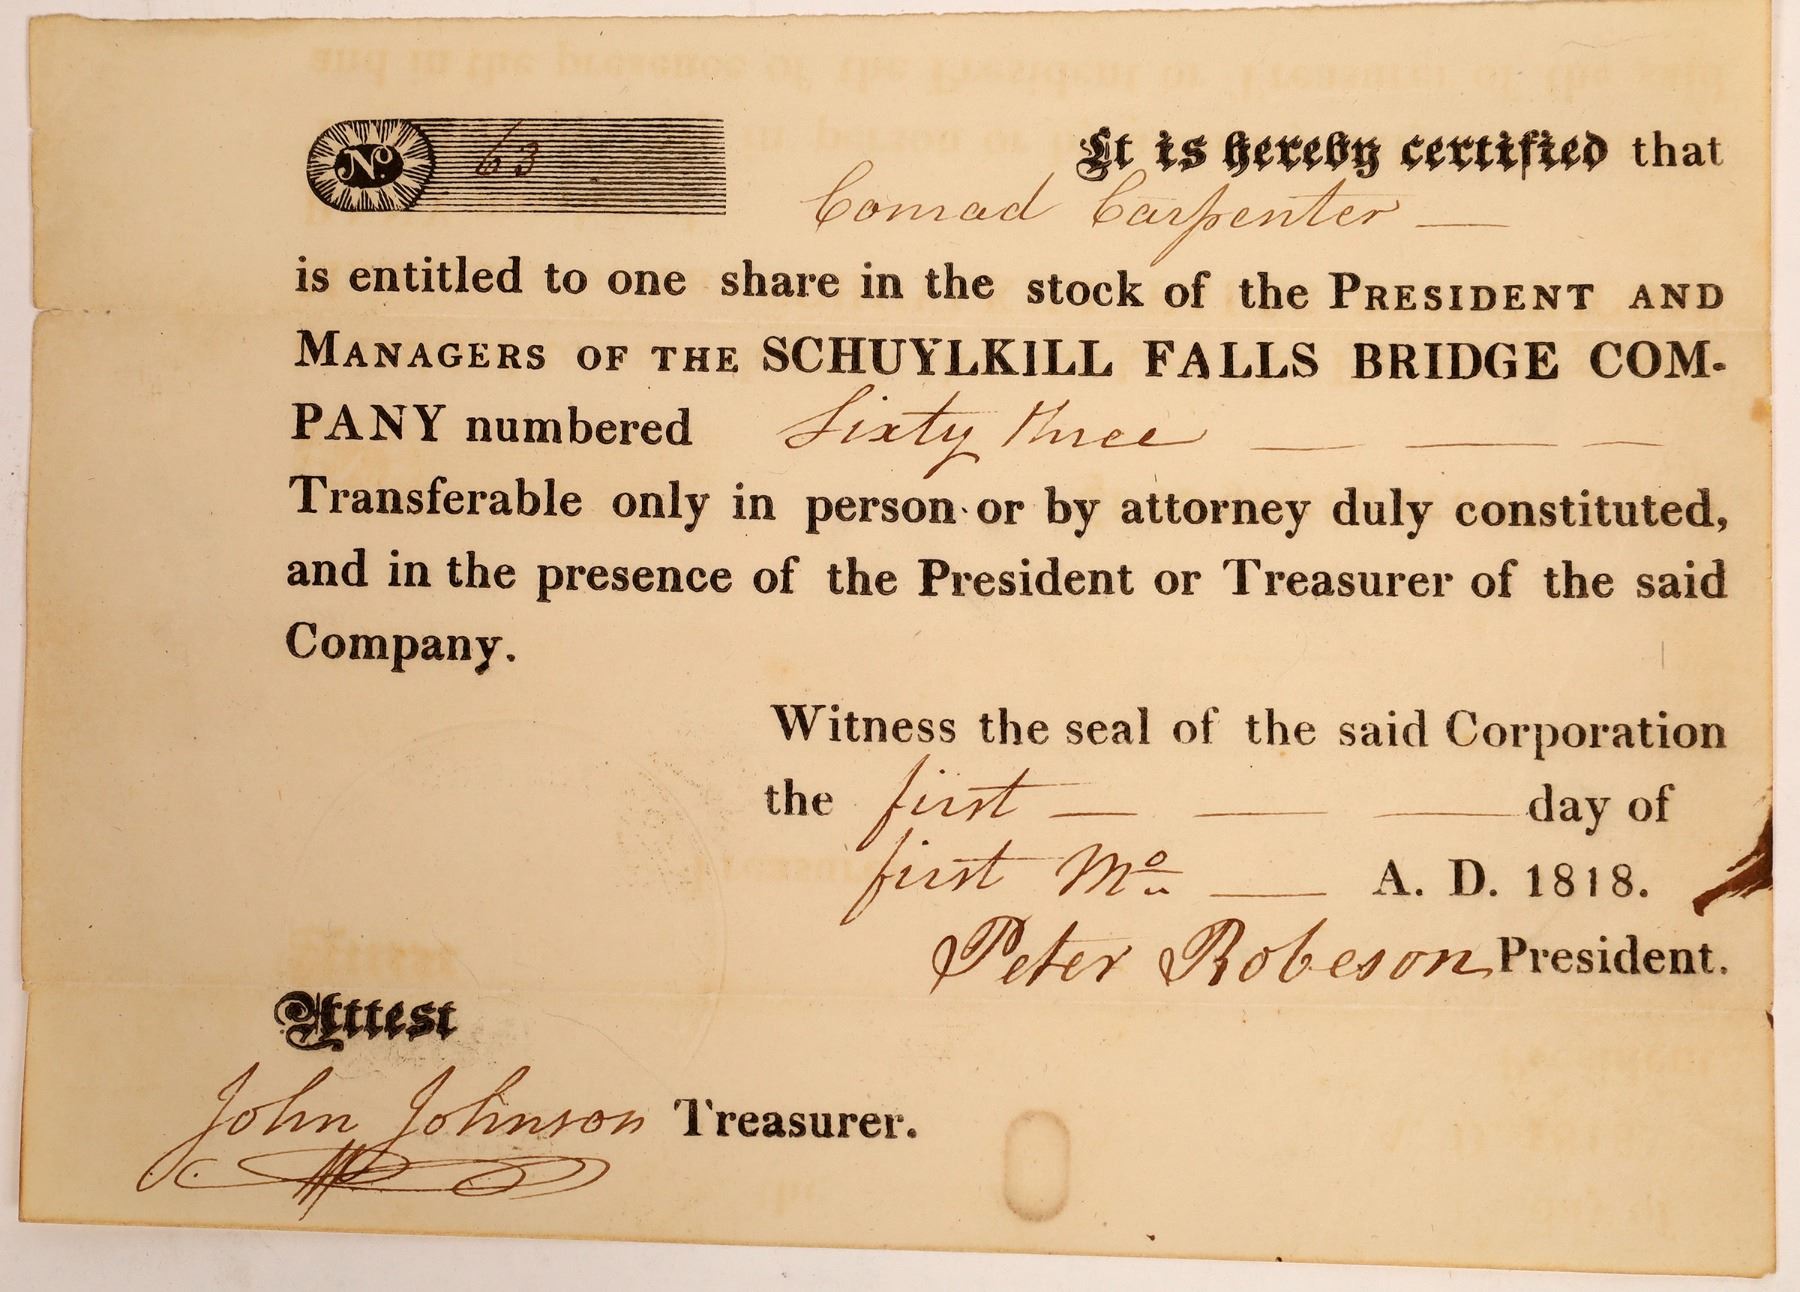 No. 63 It is hereby certified that
Conrad Carpenter —
is entitled to one share in the stock of the PRESIDENT AND
MANAGERS OF THE SCHUYLKILL FALLS BRIDGE COM-
PANY numbered Sixty Three — — —
Transferable only in person or by attorney duly constituted,
and in the presence of the President or Treasurer of the said
Company.
Witness the seal of the said Corporation
the first — — — day of
first Mo — A. D. 1818.
Peter Robeson President.
Attest
John Johnson Treasurer.